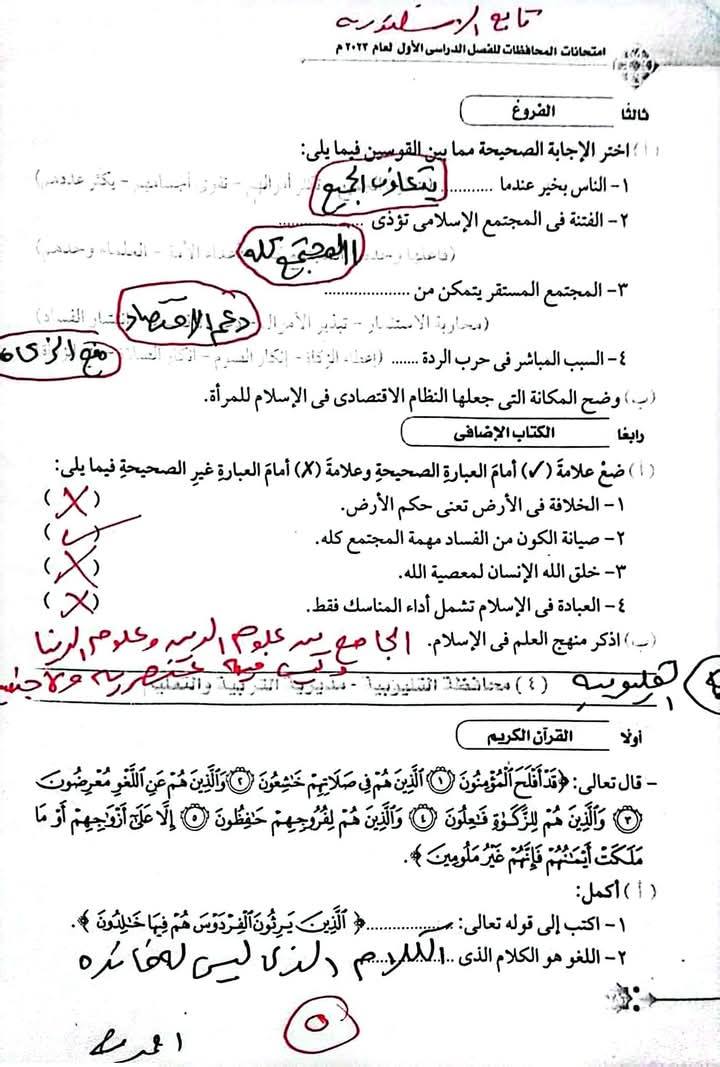 تابع الإسكندرية
امتحانات المحافظات للفصل الدراسى الأول لعام ٢٠٢٣ م
ثالثا الفروع
(أ) اختر الإجابة الصحيحة مما بين القوسين فيما يلى:
١- الناس بخير عندما .......... يتعاون الجميع - تقوى أجسامهم - يكثر عددهم)
٢- الفتنة فى المجتمع الإسلامى تؤذى ..................
المجتمع كله - العلماء وحدهم)
٣- المجتمع المستقر يتمكن من ..................
(محاربة الاستثمار - تبذير الأموال دعم الاقتصاد انتشار الفساد)
٤- السبب المباشر فى حرب الردة ...... (إعطاء الزكاة - إنكار الصوم - منع الزكاة
(ب) وضح المكانة التى جعلها النظام الاقتصادى فى الإسلام للمرأة.
رابعا الكتاب الإضافى
(أ) ضعْ علامةَ (✓) أمامَ العبارةِ الصحيحةِ وعلامةَ (✗) أمامَ العبارةِ غيرِ الصحيحةِ فيما يلى:
١- الخلافة فى الأرض تعنى حكم الأرض. (✗)
٢- صيانة الكون من الفساد مهمة المجتمع كله. (✓)
٣- خلق الله الإنسان لمعصية الله. (✗)
٤- العبادة فى الإسلام تشمل أداء المناسك فقط. (✗)
(ب) اذكر منهج العلم فى الإسلام. الجامع بين علوم الدين وعلوم الدنيا
وليس فيه عنصرية ولا
(٤) محافظة القليوبية - مديرية التربية والتعليم القليوبية
أولا القرآن الكريم
- قال تعالى: ﴿قَدْ أَفْلَحَ الْمُؤْمِنُونَ ① الَّذِينَ هُمْ فِي صَلَاتِهِمْ خَاشِعُونَ ② وَالَّذِينَ هُمْ عَنِ اللَّغْوِ مُعْرِضُونَ
③ وَالَّذِينَ هُمْ لِلزَّكَوٰةِ فَاعِلُونَ ④ وَالَّذِينَ هُمْ لِفُرُوجِهِمْ حَافِظُونَ ⑤ إِلَّا عَلَىٰ أَزْوَاجِهِمْ أَوْ مَا
مَلَكَتْ أَيْمَانُهُمْ فَإِنَّهُمْ غَيْرُ مَلُومِينَ﴾.
(أ) أكمل:
١- اكتب إلى قوله تعالى: ..................﴿الَّذِينَ يَرِثُونَ الْفِرْدَوْسَ هُمْ فِيهَا خَالِدُونَ﴾.
٢- اللغو هو الكلام الذى .... الكلام الذى ليس له فائدة
٥